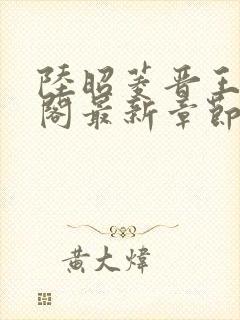 陸昭菱晉王
閣最新章節
黃大煒